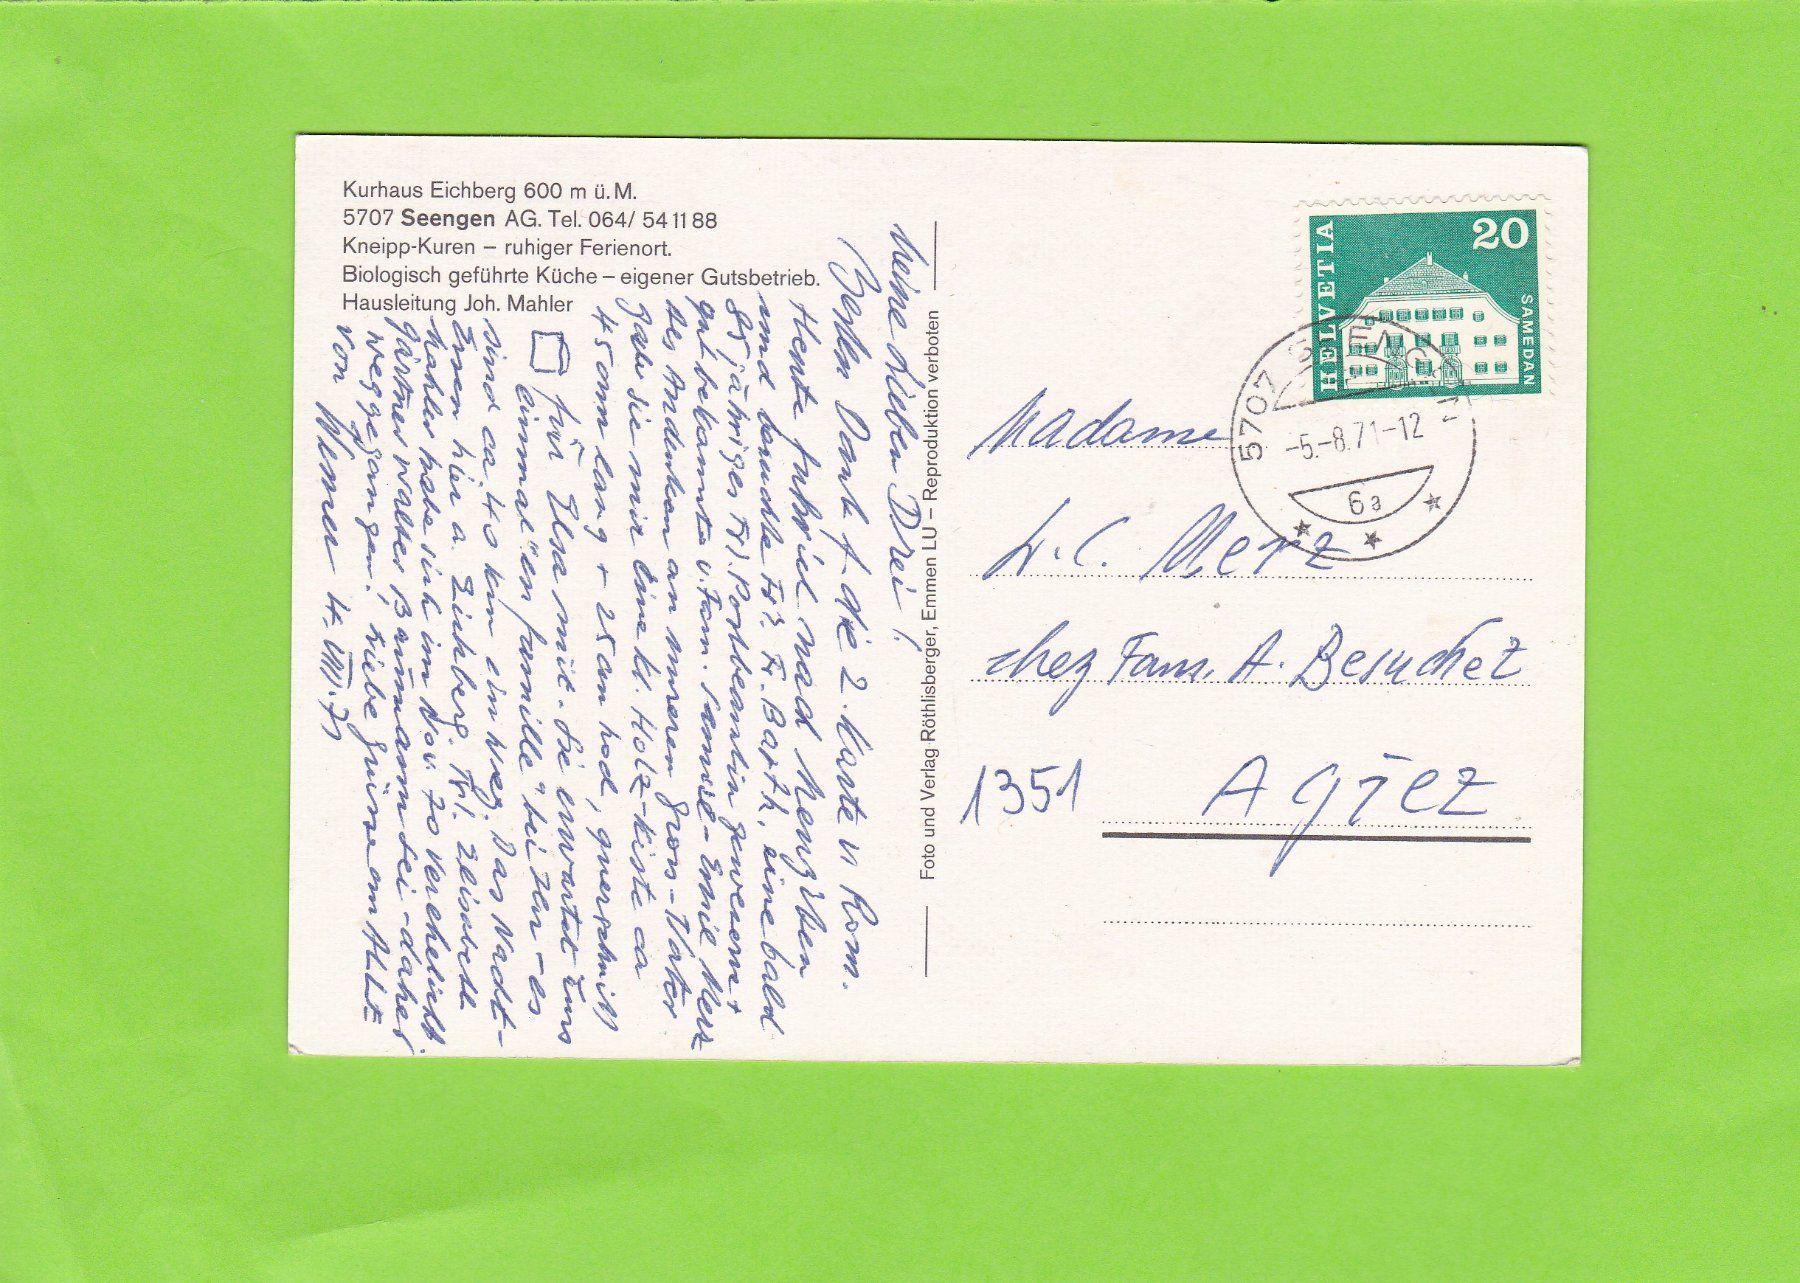 Kurhaus Eichberg 600 m ü. M.
5707 Seengen AG. Tel. 064/ 54 11 88
Kneipp-Kuren – ruhiger Ferienort.
Biologisch geführte Küche – eigener Gutsbetrieb.
Hausleitung Joh. Mahler
Meine Lieben Drei!
Besten Dank f. die 2. Karte v. Rom.
Heute fuhr ich nach
und besuchte Frl. Fr. Barth, eine bald
85 jähriges Frl. Postbeamtin gewesen +
gut bekannt v. Fam. Samuel-Emil Merz
des Andenken an unseren Gross-Vater
Gab sie mir eine kl. Holz-Kiste ca
45 cm lang + 25 cm hoch, querschnitt
für Elsa mit. Sie erwartet Euns
einmal "en famille" bei Ihr - es
sind ca. 40 km ein Weg. Das Nacht-
Essen hier a. Eichberg. Frl.
Mahler habe sich im Nov. 70 verehelicht
Gärtner Walter Baumann sei - daher
weggegangen. Liebe Grüsse an Alle
von Werner 4. VIII. 71
Foto und Verlag Röthlisberger, Emmen LU – Reproduktion verboten
HELVETIA
20
SAMEDAN
5707 SEENGEN
-5.-8.71-12
6a
Madame
L. C. Merz
chez Fam. A. Besuchet
1351 Agiez